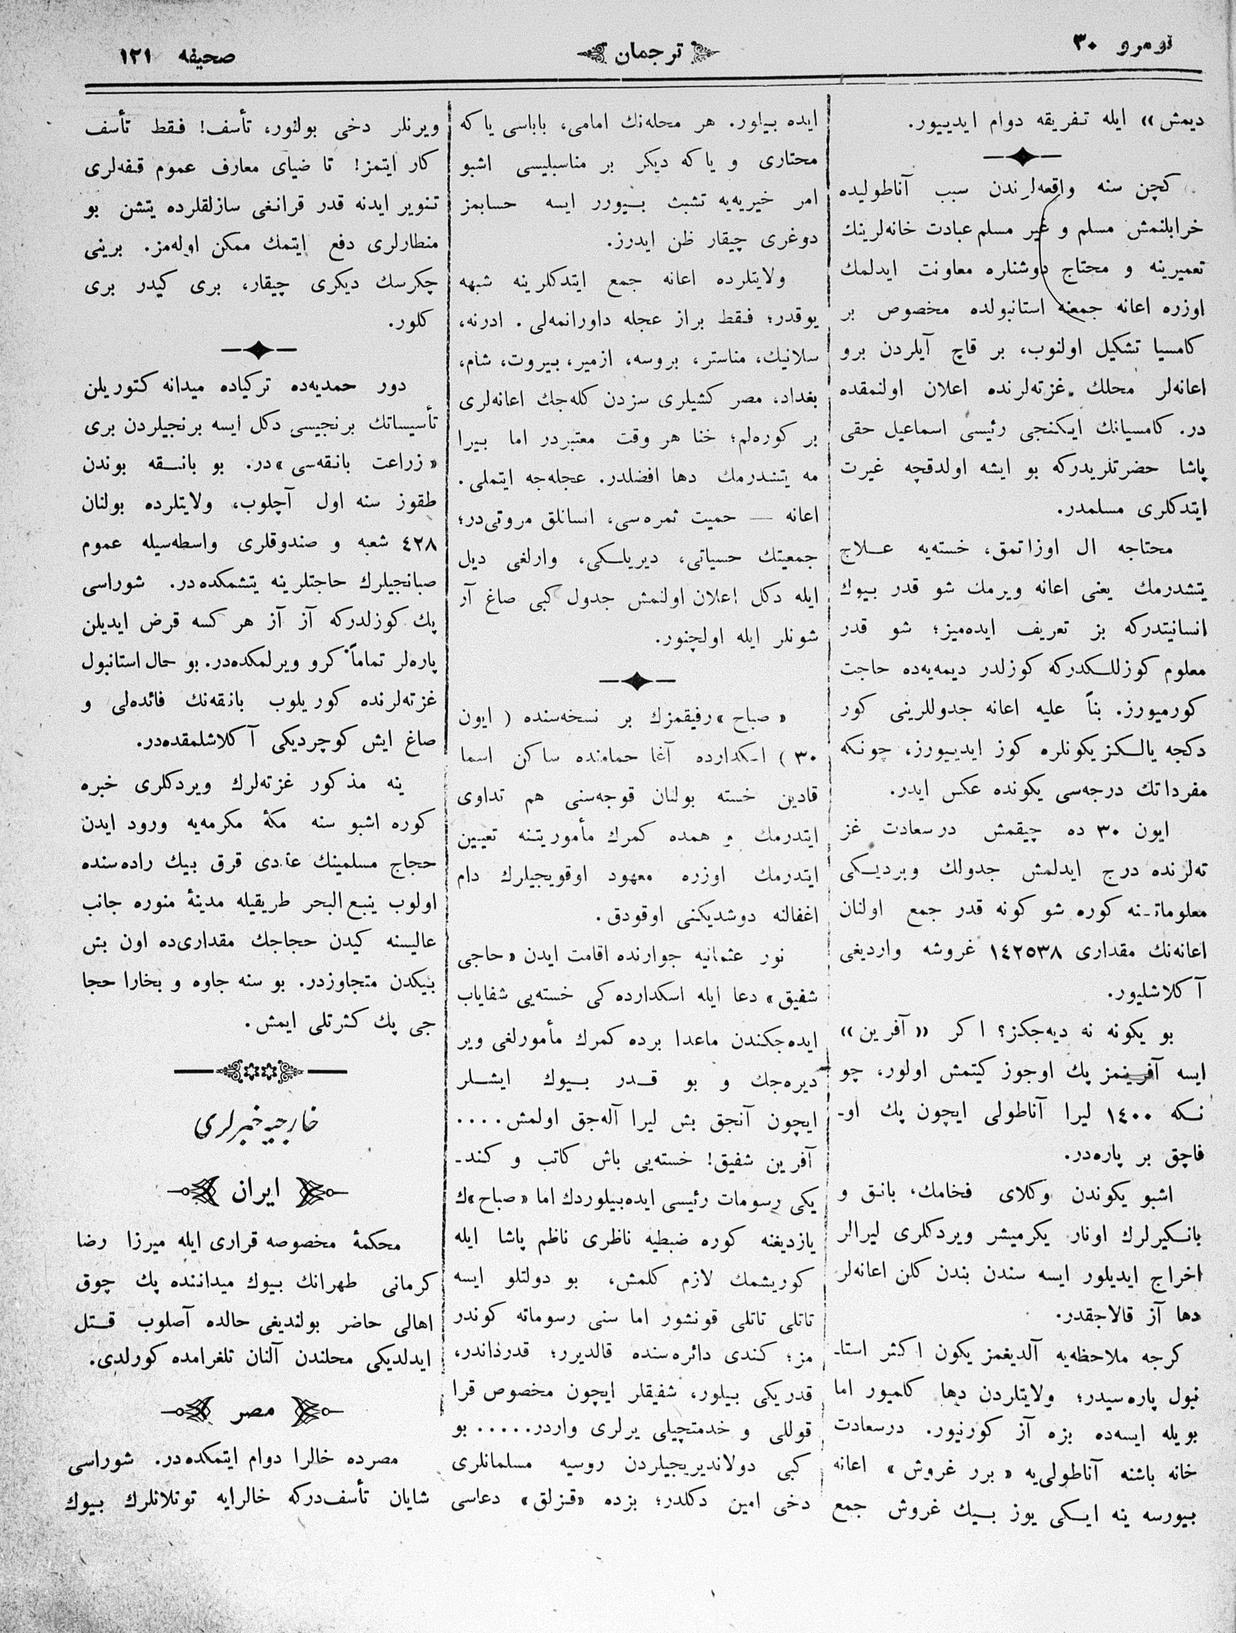 نومرو ٣٠
ترجمان
صحیفه ١٢١
دیمش» ایله تفریقه دوام ایدییور.
کچن سنه واقعه‌لرندن سبب آناطولیده
خرابلنمش مسلم و غیر مسلم عبادت خانه‌لرینك
تعمیرینه و محتاج دوشناره معاونت ایدلمك
اوزره اعانه جمعنه استانبولده مخصوص بر
کامسیا تشکیل اولنوب، بر قاچ آیلردن برو
اعانه‌لر محلك غزته‌لرنده اعلان اولنمقده
در. کامسیانك ایکنجی رئیسی اسماعیل حقی
پاشا حضرتلریدرکه بو ایشه اولدقچه غیرت
ایتدکلری مسلمدر.
محتاجه ال اوزاتمق، خسته‌یه علاج
یتشدرمك یعنی اعانه ویرمك شو قدر بیوك
انسانیتدرکه بز تعریف ایده‌میز؛ شو قدر
معلوم کوزللکدرکه کوزلدر دیمه‌یه‌ده حاجت
کورمیورز. بناً علیه اعانه جدوللرینی کور
دکجه یالکز یکونلره کوز ایدییورز، چونکه
مفرداتك درجه‌سی یکونده عکس ایدر.
ایون ٣٠ ده چیقمش درسعادت غز
ته‌لرنده درج ایدلمش جدولك ویردیکی
معلوماتـنه کوره شو کونه قدر جمع اولنان
اعانه‌نك مقداری ١٤٢٥٣٨ غروشه واردیغی
آکلاشلیور.
بو یکونه نه دیه‌جکز؟ اکر «آفرین»
ایسه آفرینمز پك اوجوز کیتمش اولور، چو
نکه ١٤٠٠ لیرا آناطولی ایچون پك اوـ
فاچق بر پاره‌در.
اشبو یکوندن وکلای فخامك، بانق و
بانکیرلرك اونار یکرمیشر ویردکلری لیرالر
اخراج ایدیلور ایسه سندن بندن کلن اعانه‌لر
دها آز قالاجقدر.
کرجه ملاحظه‌یه آلدیغمز یکون اکثر استاـ
نبول پاره‌سیدر؛ ولایتلردن دها کلمیور اما
بویله ایسه‌ده بزه آز کورنیور. درسعادت
خانه باشنه آناطولی‌یه «برر غروش» اعانه
بیورسه ینه ایکی یوز بیك غروش جمع
ایده بیلور. هر محله‌نك امامی، باباسی یاکه
مختاری و یاکه دیکر بر مناسبلیسی اشبو
امر خیریه‌یه تشبث بیورر ایسه حسابمز
دوغری چیقار ظن ایدرز.
ولایتلرده اعانه جمع ایتدکلرینه شبهه
یوقدر؛ فقط براز عجله داورانمه‌لی. ادرنه،
سلانیك، مناستر، بروسه، ازمیر، بیروت، شام،
بغداد، مصر کشیلری سزدن کله‌جك اعانه‌لری
بر کوره‌لم؛ خنا هر وقت معتبردر اما بیرا
مه یتشدرمك دها افضلدر. عجله‌جه ایتملی.
اعانه — حمیت ثمره‌سی، انسانلق مروتی‌در؛
جمعیتك حسیاتی، دیریلـکی، وارلغی دیل
ایله دکل اعلان اولنمش جدول کبی صاغ آر
شونلر ایله اولچنور.
«صباح» رفیقمزك بر نسخه‌سنده (ایون
٣٠) اسکدارده آغا حمامنده ساکن اسما
قادین خسته بولنان قوجه‌سنی هم تداوی
ایتدرمك و همده کمرك مأموریتنه تعیین
ایتدرمك اوزره معهود اوقویجیلرك دام
اغفالنه دوشدیکنی اوقودق.
نور عثمانیه جوارنده اقامت ایدن «حاجی
شفیق» دعا ایله اسکدارده کی خسته‌یی شفایاب
ایده‌جکندن ماعدا برده کمرك مأمورلغی ویر
دیره‌جك و بو قدر بیوك ایشلر
ایچون آنجق بش لیرا آله‌جق اولمش....
آفرین شفیق! خسته‌یی باش کاتب و کندـ
یکی رسومات رئیسی ایده‌بیلوردك اما «صباح»ك
یازدیغنه کوره ضبطیه ناظری ناظم پاشا ایله
کوریشمك لازم کلمش، بو دولتلو ایسه
تاتلی تاتلی قونشور اما سنی رسوماته کوندر
مز؛ کندی دائره‌سنده قالدیرر؛ قدرداندر،
قدریکی بیلور، شفیقلر ایچون مخصوص قرا
قوللی و خدمتچیلی یرلری واردر..... بو
کبی دولاندیریجیلردن روسیه مسلمانلری
دخی امین دکلدر؛ بزده «قزلق» دعاسی
ویرنلر دخی بولنور، تأسف! فقط تأسف
کار ایتمز! تا ضیای معارف عموم قنفه‌لری
تنویر ایدنه قدر قرانغی سازلقلرده یتشن بو
منطارلری دفع ایتمك ممکن اوله‌مز. برینی
چکرسك دیکری چیقار، بری کیدر بری
کلور.
دور حمدیه‌ده ترکیاده میدانه کتوریلن
تأسیساتك برنجیسی دکل ایسه برنجیلردن بری
«زراعت بانقه‌سی»در. بو بانقه بوندن
طقوز سنه اول آچلوب، ولایتلرده بولنان
٤٢٨ شعبه و صندوقلری واسطه‌سیله عموم
صبانجیلرك حاجتلرینه یتشمکده‌در. شوراسی
پك کوزلدرکه آز آز هر کسه قرض ایدیلن
پاره‌لر تماماً کرو ویرلمکده‌در. بو حال استانبول
غزته‌لرنده کوریلوب بانقه‌نك فائده‌لی و
صاغ ایش کوچردیکی آکلاشلمقده‌در.
ینه مذکور غزته‌لرك ویردکلری خبره
کوره اشبو سنه مکۀ مکرمه‌یه ورود ایدن
حجاج مسلمینك عددی قرق بیك راده‌سنده
اولوب ینبع البحر طریقیله مدینۀ منوره جانب
عالیسنه کیدن حجاجك مقداری‌ده اون بش
بیکدن متجاوزدر. بو سنه جاوه و بخارا حجا
جی پك کثرتلی ایمش.
خارجیه خبرلری
ایران
محکمۀ مخصوصه قراری ایله میرزا رضا
کرمانی طهرانك بیوك میداننده پك چوق
اهالی حاضر بولندیغی حالده آصلوب قتل
ایدلدیکی محلندن آلنان تلغرامده کورلدی.
مصر
مصرده خالرا دوام ایتمکده‌در. شوراسی
شایان تأسف‌درکه خالرایه توتلانلرك بیوك